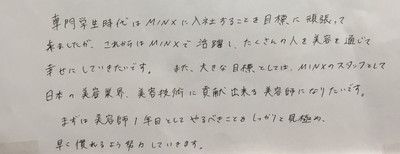 専門学生時代はMINXに入社することを目標に頑張って
来ましたが、これからはMINXで活躍し、たくさんの人を美容を通じて
幸せにしていきたいです。また、大きな目標としては、MINXのスタッフとして
日本の美容業界、美容技術に貢献出来る美容師になりたいです。
まずは美容師1年目としてやるべきことをしっかりと見極め、
早く慣れるよう努力していきます。